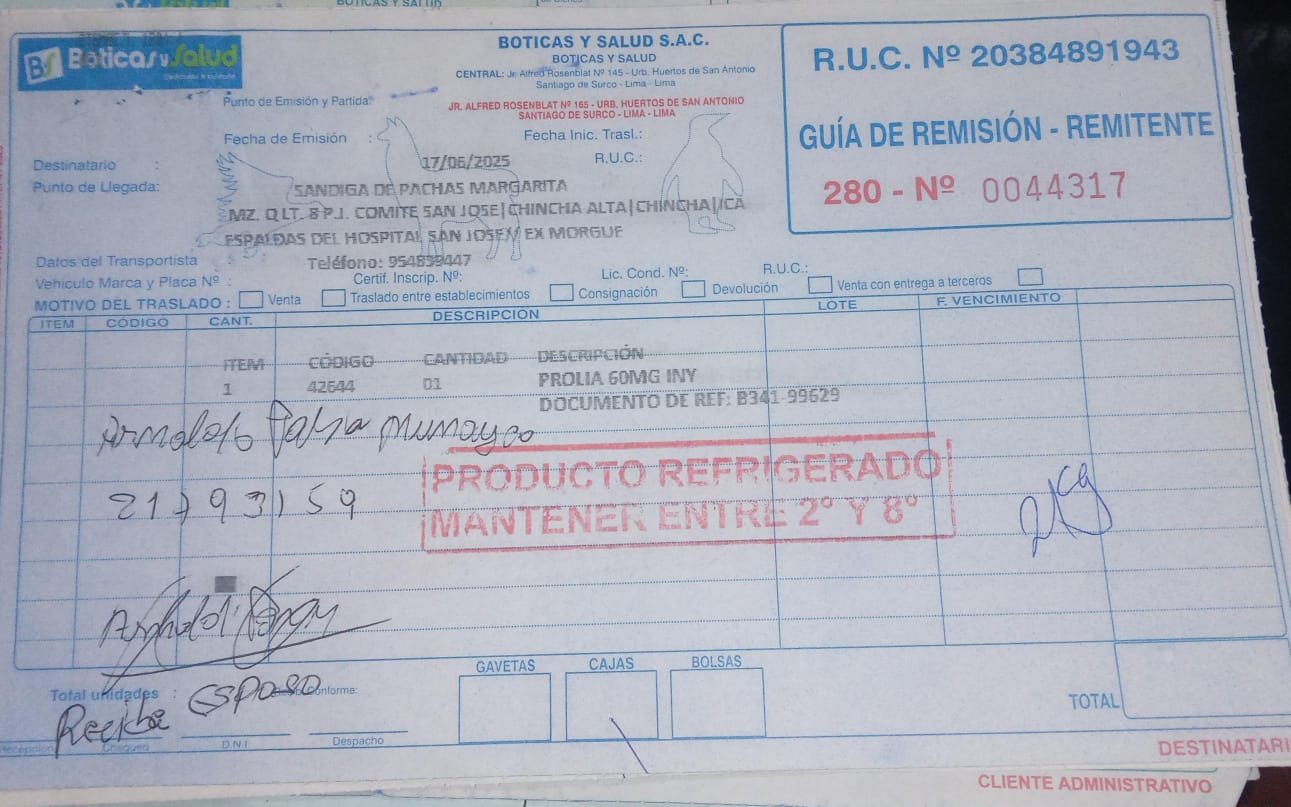 BOTICAS Y SALUD
BS Boticas y Salud
BOTICAS Y SALUD S.A.C.
BOTICAS Y SALUD
CENTRAL: Jr. Alfred Rosenblat Nº 145 - Urb. Huertos de San Antonio
Santiago de Surco - Lima - Lima
Punto de Emisión y Partida:
JR. ALFRED ROSENBLAT Nº 165 - URB. HUERTOS DE SAN ANTONIO
SANTIAGO DE SURCO - LIMA - LIMA
R.U.C. Nº 20384891943
GUÍA DE REMISIÓN - REMITENTE
280 - Nº 0044317
Fecha de Emisión :
Fecha Inic. Trasl.:
17/06/2025
Destinatario :
R.U.C.:
Punto de Llegada:
SANDIGA DE PACHAS MARGARITA
MZ. Q LT. 8 P.J. COMITE SAN JOSE|CHINCHA ALTA|CHINCHA|ICA
ESPALDAS DEL HOSPITAL SAN JOSE// EX MORGUE
Datos del Transportista :
Teléfono: 954839447
Vehículo Marca y Placa Nº :
Certif. Inscrip. Nº:
Lic. Cond. Nº:
R.U.C.:
MOTIVO DEL TRASLADO : Venta Traslado entre establecimientos Consignación Devolución Venta con entrega a terceros
ITEM CÓDIGO CANT. DESCRIPCIÓN LOTE F. VENCIMIENTO
ITEM CÓDIGO CANTIDAD DESCRIPCIÓN
1 42644 01 PROLIA 60MG INY
DOCUMENTO DE REF: B341-99629
Arnoldo Munayco
21793159
PRODUCTO REFRIGERADO
MANTENER ENTRE 2º Y 8º
GAVETAS CAJAS BOLSAS
Total unidades :
Conforme:
Esposo
Recibe
TOTAL
Recepción Chequeo D.N.I. Despacho
DESTINATARI
CLIENTE ADMINISTRATIVO